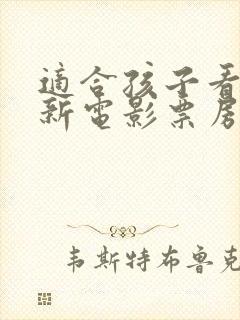 適合孩子看
新電影票房
韦斯特布鲁克